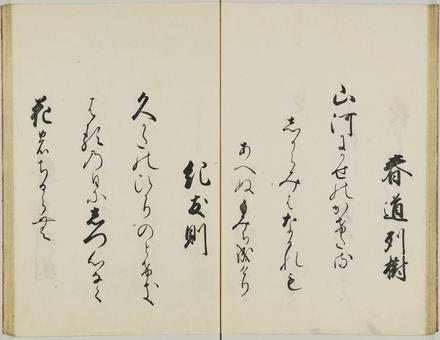 春道列樹
山河にかせのかけたる
しからみはなかれも
あへぬもみち成けり
紀友則
久かたのひかりのとけき
はるの日にしつ心なく
花のちるらむ